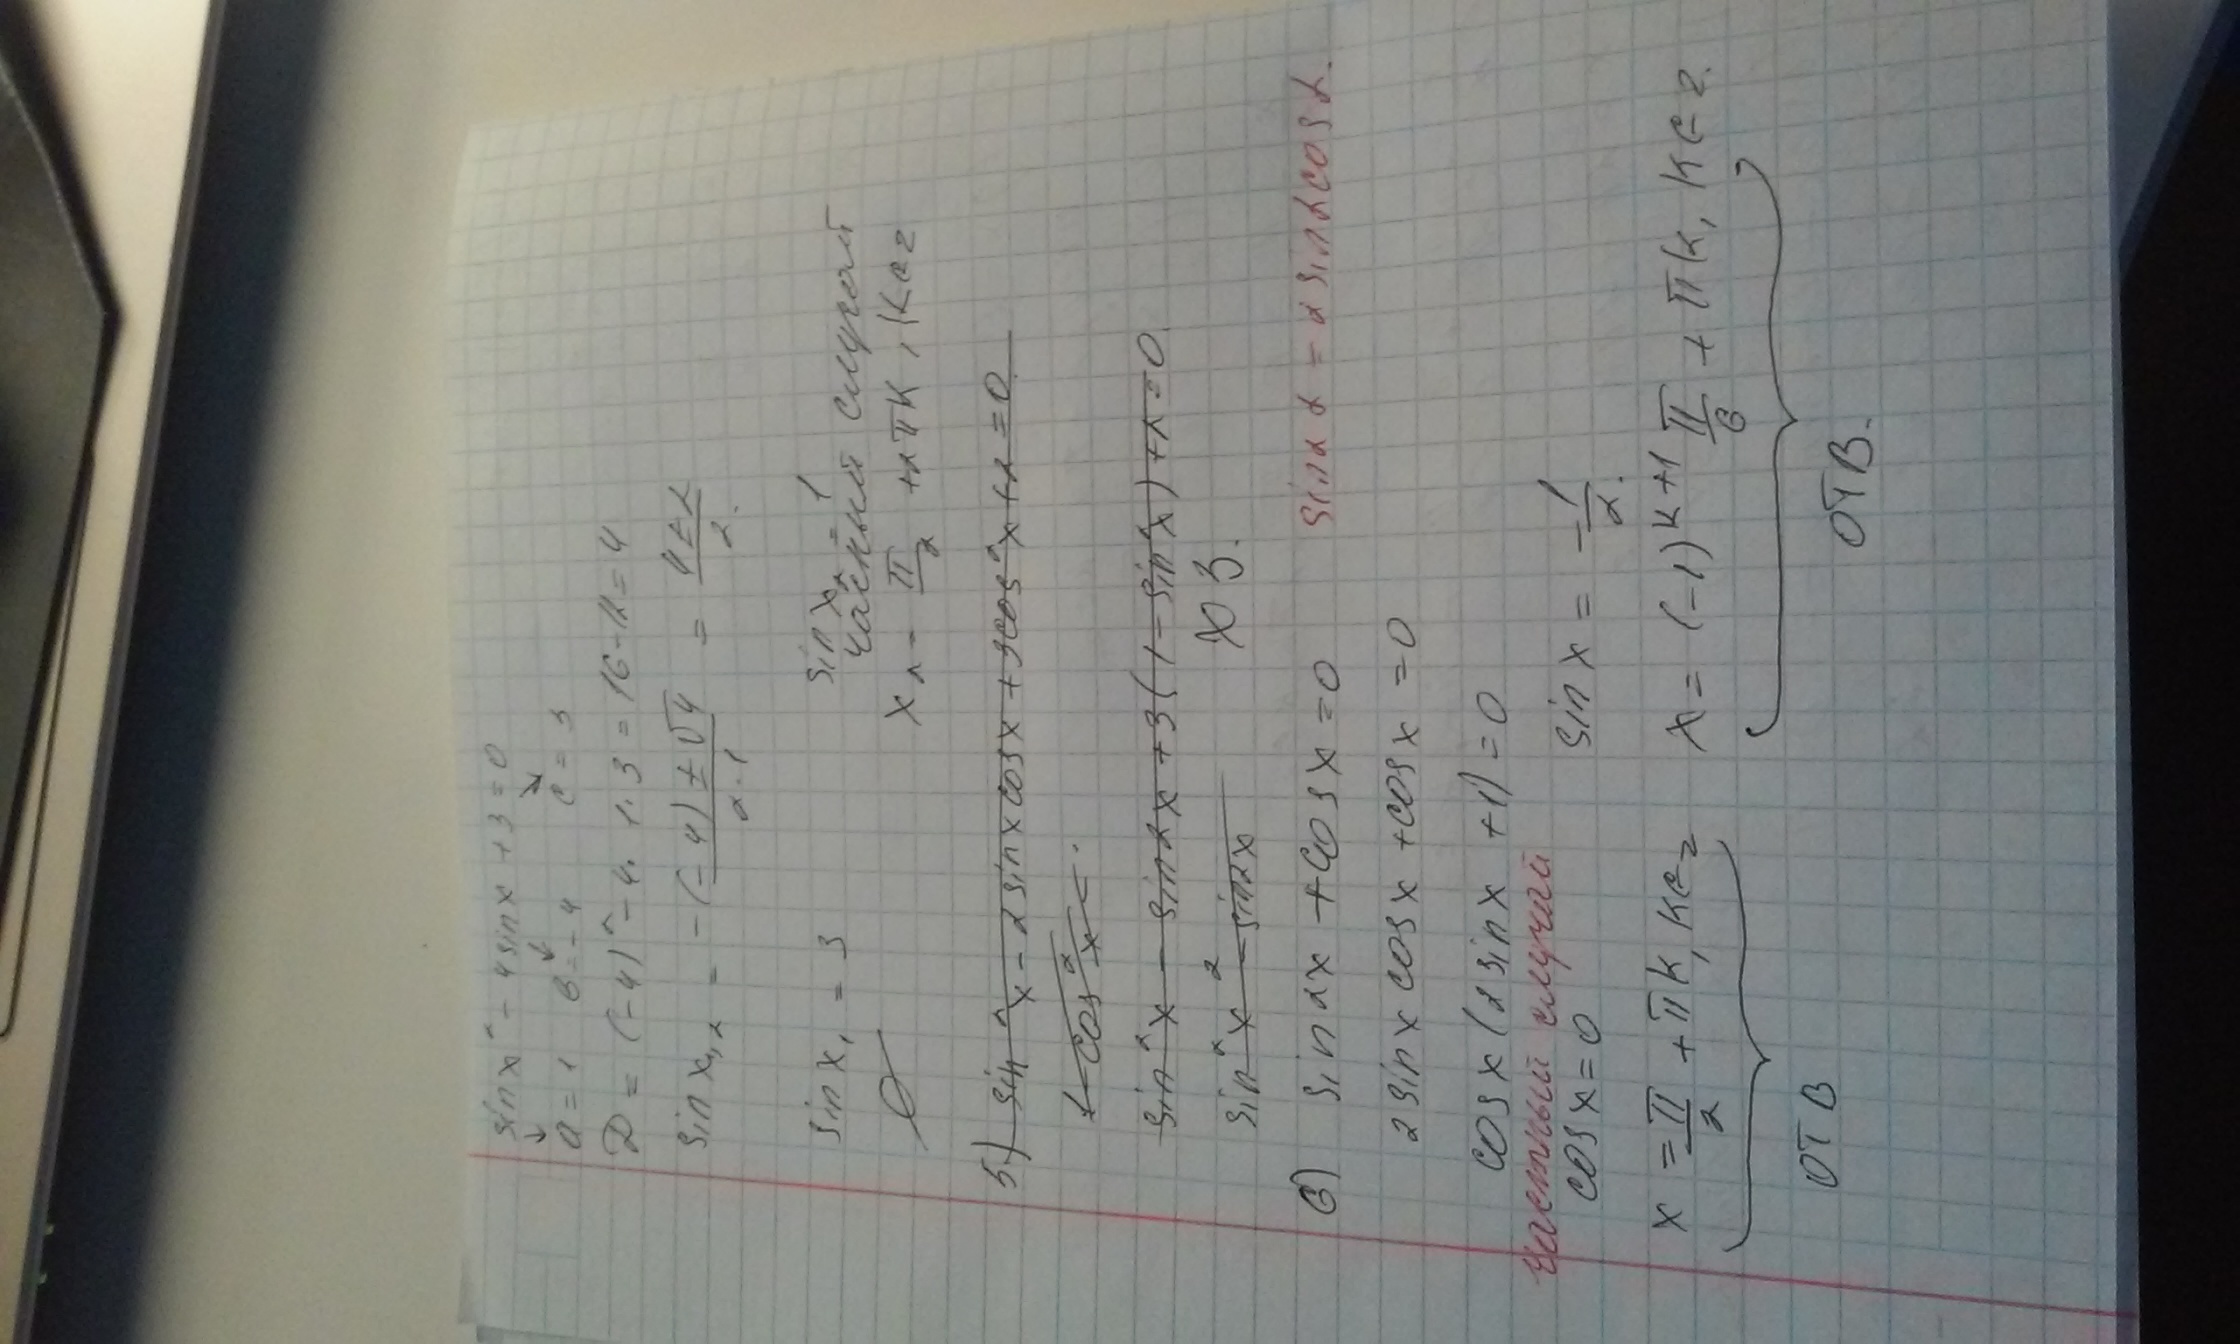 sin x² - 4 sin x + 3 = 0
a = 1 в = -4 c = 3
D = (-4)² - 4 · 1 · 3 = 16 - 12 = 4
sin x₁,₂ = -(-4) ± √4 / 2 · 1 = 4 ± 2 / 2
sin x₁ = 3 sin x₂ = 1
∅ частный случай
x = π/2 + 2πк, к ∈ z
5) sin² x - 2 sin x cos x + 3 cos² x + 2 = 0
1 - cos² x
sin² x - sin 2x + 3(1 - sin² x) + 2 = 0
sin² x² - sin 2x ХЗ.
6) sin 2x + cos x = 0 sin 2α = 2 sin α cos α.
2 sin x cos x + cos x = 0
cos x (2 sin x + 1) = 0
частный случай
cos x = 0 sin x = -1/2.
x = π/2 + πк, к ∈ z x = (-1)ᴷ⁺¹ π/6 + πк, к ∈ z.
ОТВ ОТВ.